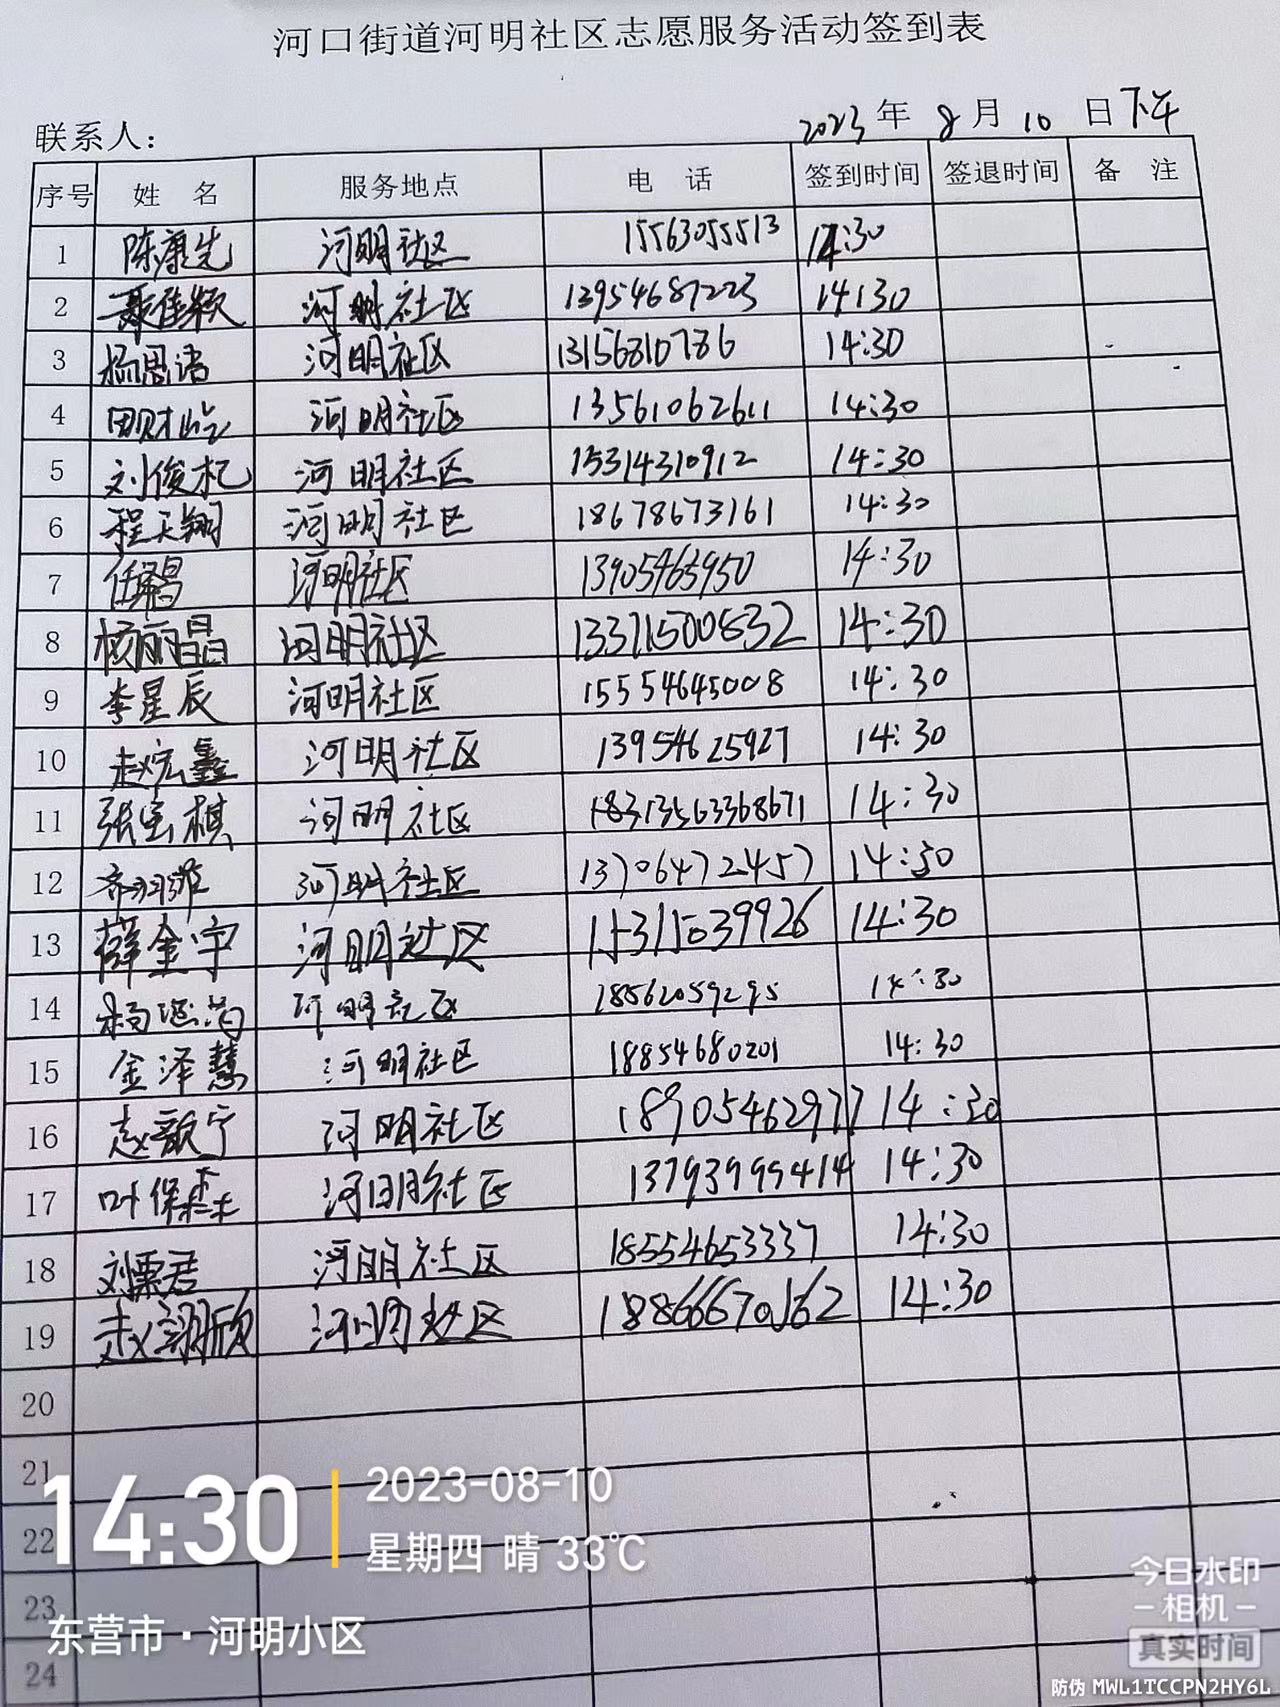 河口街道河明社区志愿服务活动签到表
联系人： 2023年 8月 10 日 下午
序号 姓 名 服务地点 电 话 签到时间 签退时间 备 注
1 陈康先 河明社区 15563055513 14:30
2 聂佳颖 河明社区 13954687223 14:30
3 杨思语 河明社区 13156810786 14:30
4 田财屹 河明社区 13561062611 14:30
5 刘俊杞 河明社区 15314310912 14:30
6 程天翔 河明社区 18678673161 14:30
7 任 河明社区 13905463950 14:30
8 杨丽晶 河明社区 13371500832 14:30
9 李星辰 河明社区 15554645008 14:30
10 赵宏鑫 河明社区 13954625927 14:30
11 张宝棋 河明社区 14:30
12 河明社区 13706472457 14:30
13 薛金宁 河明社区 15315039926 14:30
14 杨 河明社区 18562059295 14:30
15 金泽慧 河明社区 18854680201 14:30
16 赵歆宁 河明社区 18905462977 14:30
17 叶保森 河明社区 13793999414 14:30
18 刘栗君 河明社区 18554653337 14:30
19 赵翊欣 河明社区 18866670162 14:30
20
21
22
23
24
14:30
2023-08-10
星期四 晴 33℃
东营市·河明小区
今日水印
相机
真实时间
防伪 MWL1TCCPN2HY6L